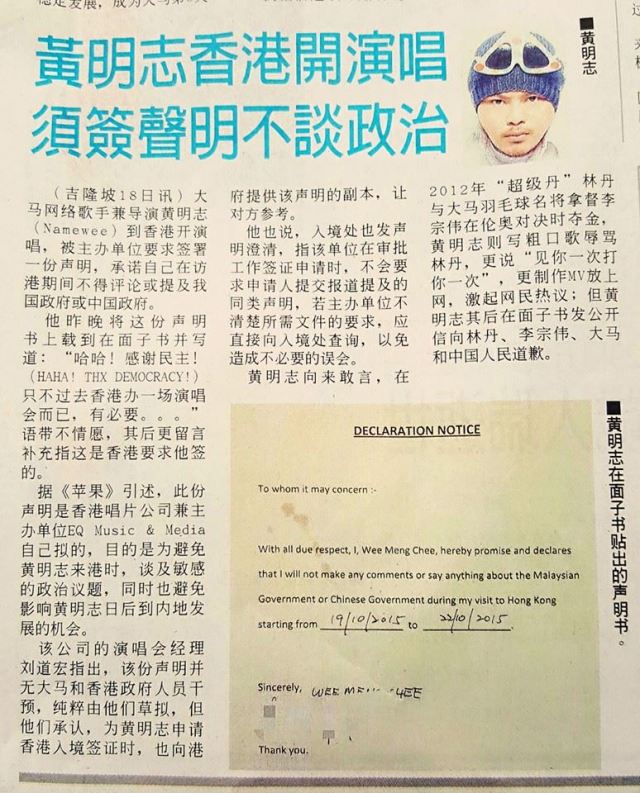 黃明志香港開演唱
須簽聲明不談政治
■黄明志
（吉隆坡18日讯）大
马网络歌手兼导演黄明志
（Namewee）到香港开演
唱，被主办单位要求签署
一份声明，承诺自己在访
港期间不得评论或提及我
国政府或中国政府。
他昨晚将这份声明
书上载到在面子书并写
道：“哈哈！感谢民主！
(HAHA! THX DEMOCRACY!)
只不过去香港办一场演唱
会而已，有必要。。。”
语带不情愿，其后更留言
补充指这是香港要求他签
的。
据《苹果》引述，此份
声明是香港唱片公司兼主
办单位EQ Music & Media
自己拟的，目的是为避免
黄明志来港时，谈及敏感
的政治议题，同时也避免
影响黄明志日后到内地发
展的机会。
该公司的演唱会经理
刘道宏指出，该份声明并
无大马和香港政府人员干
预，纯粹由他们草拟，但
他们承认，为黄明志申请
香港入境签证时，也向港
府提供该声明的副本，让
对方参考。
他也说，入境处也发声
明澄清，指该单位在审批
工作签证申请时，不会要
求申请人提交报道提及的
同类声明，若主办单位不
清楚所需文件的要求，应
直接向入境处查询，以免
造成不必要的误会。
黄明志向来敢言，在
2012年“超级丹”林丹
与大马羽毛球名将拿督李
宗伟在伦奥对决时夺金，
黄明志则写粗口歌辱骂
林丹，更说“见你一次打
你一次”，更制作MV放上
网，激起网民热议；但黄
明志其后在面子书发公开
信向林丹、李宗伟、大马
和中国人民道歉。
DECLARATION NOTICE
To whom it may concern :-
With all due respect, I, Wee Meng Chee, hereby promise and declares
that I will not make any comments or say anything about the Malaysian
Government or Chinese Government during my visit to Hong Kong
starting from 19/10/2015 to 22/10/2015.
Sincerely, WEE
Thank you.
■黄明志在面子书贴出的声明书。